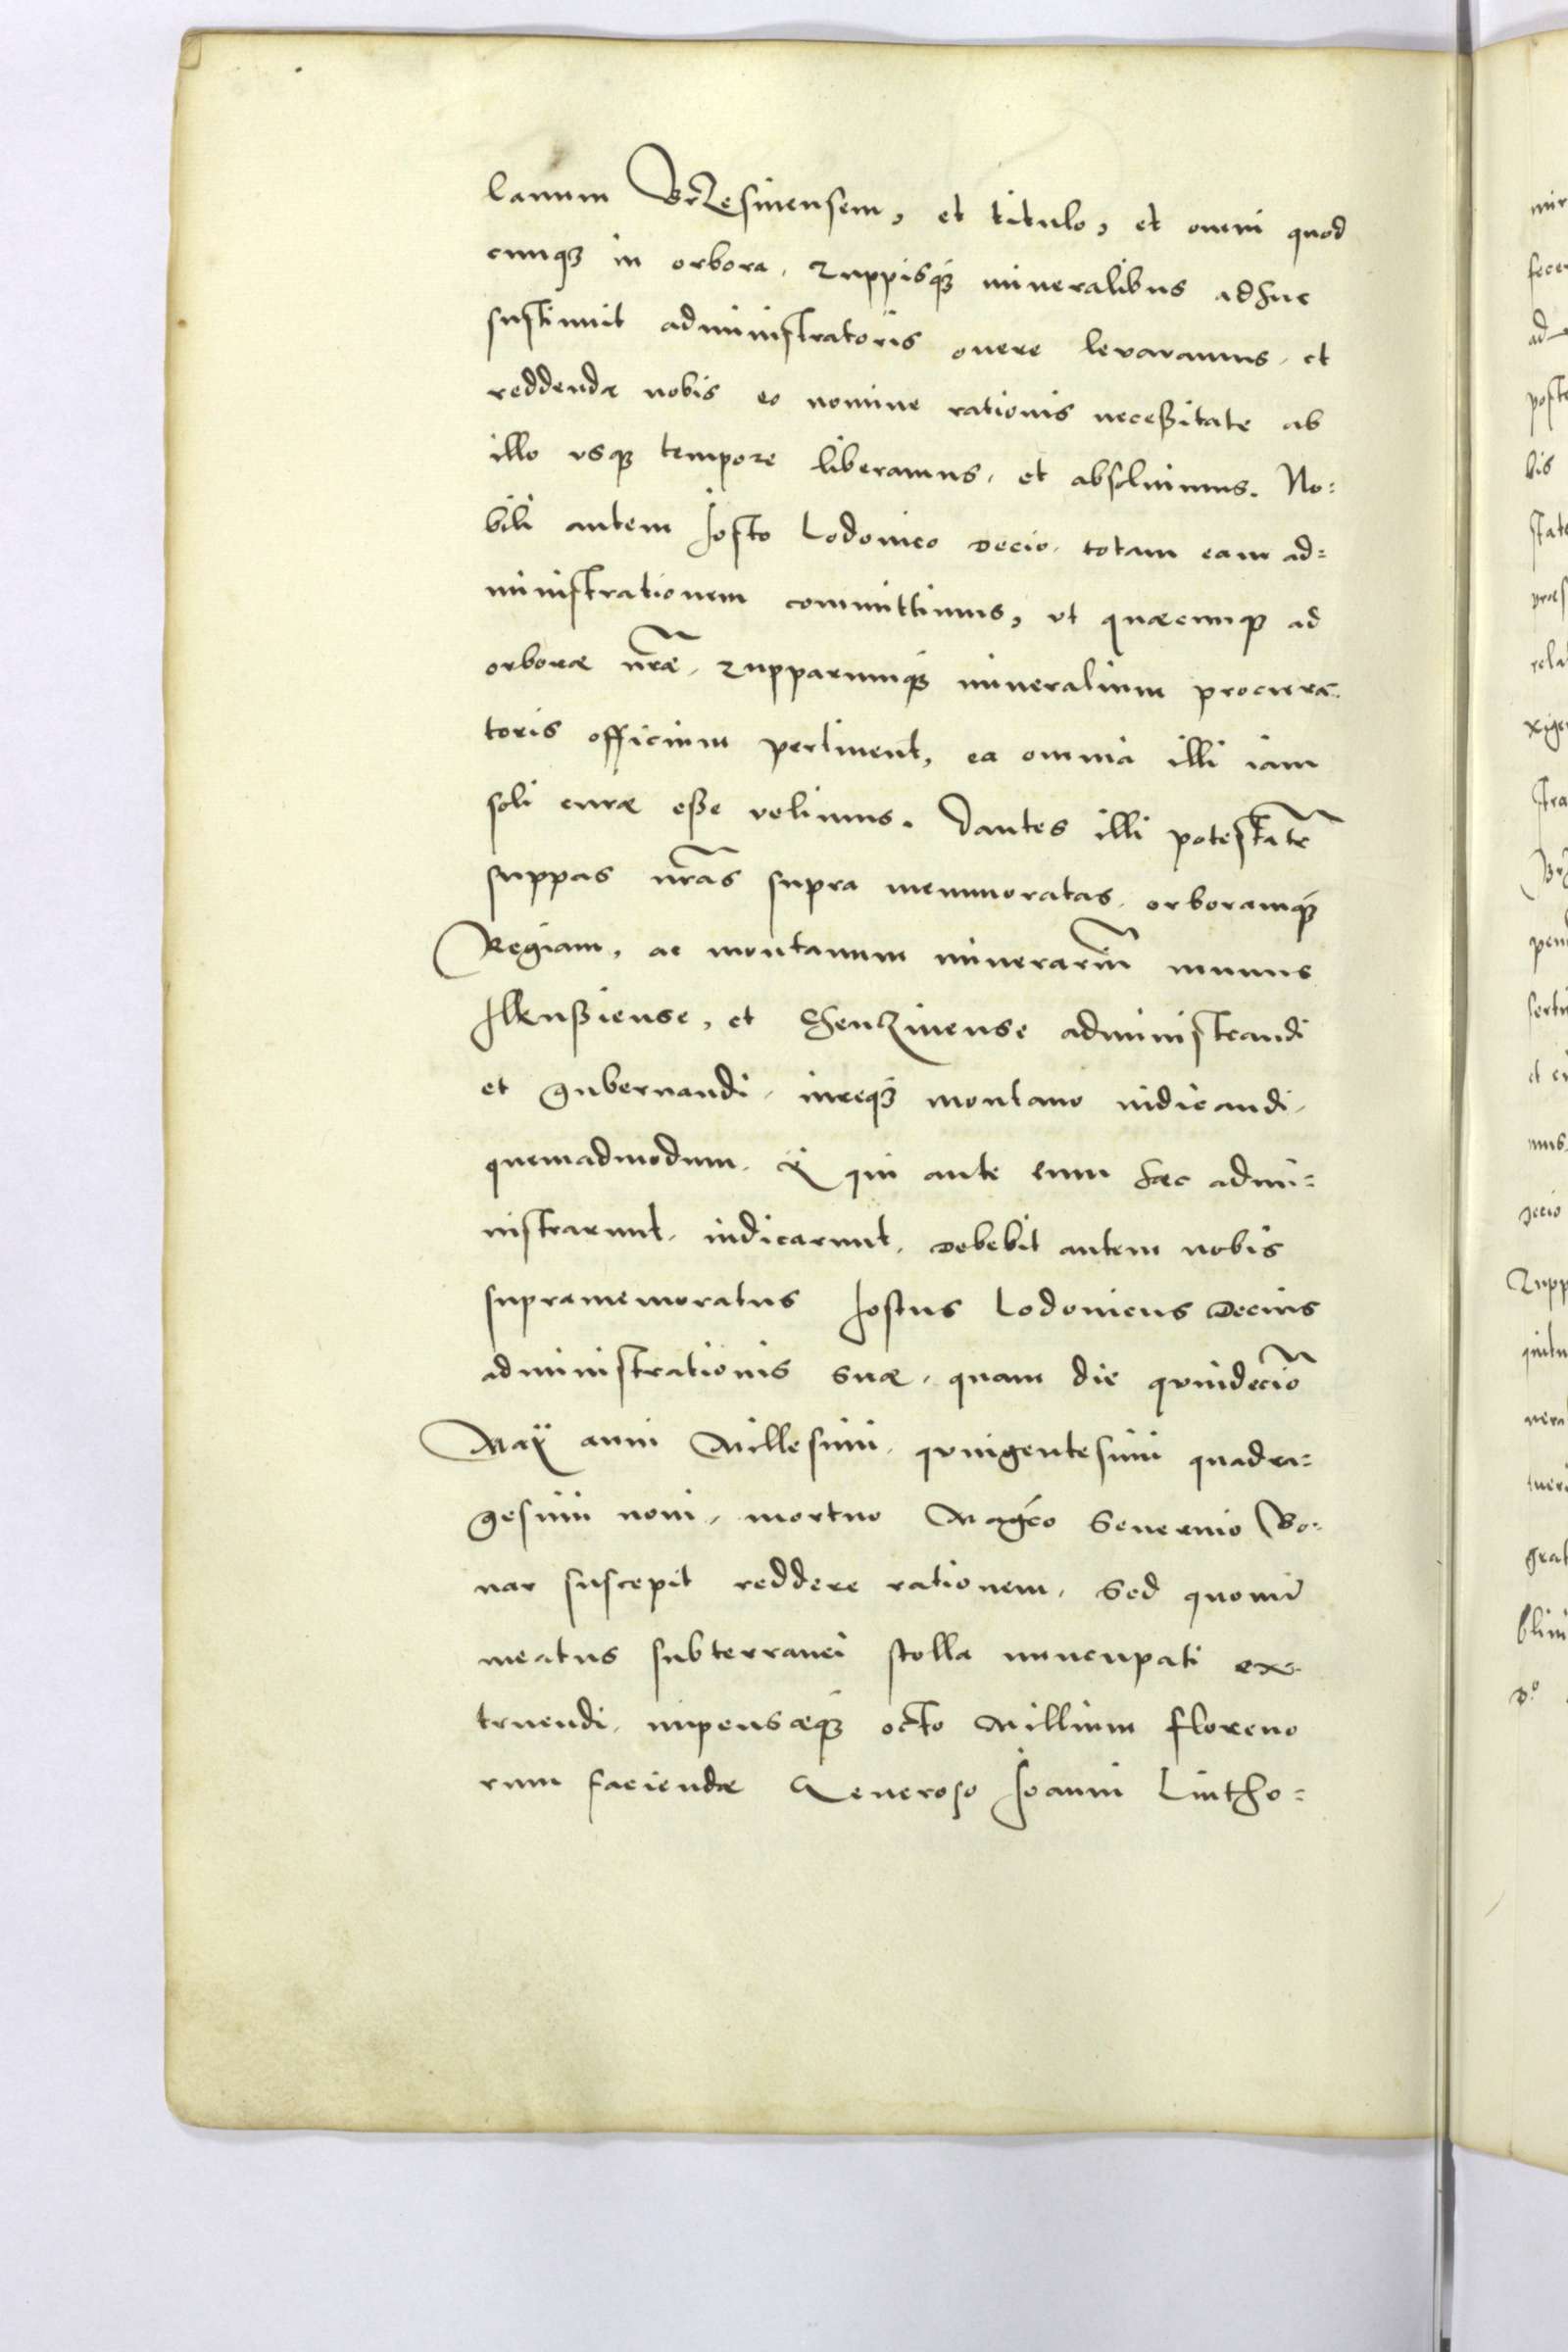 lanum Brzesinensem, et titulo, et oneri quod
cunq3 in orbora, zuppisq3 mineralibus adhuc
sustinuit administratoris onere levavimus, et
reddendæ nobis eo nomine rationis neceßitate ab
illo usq3 tempore liberamus, et absoluimus. No=
bili autem Josto Lodovico Decio, totam eam ad=
ministrationem committimus, ut quæcunq3 ad
orboræ nr̃æ, zupparumq3 mineralium procura=
toris officium pertinent, ea omnia illi iam
soli curæ eße velimus. Dantes illi potestatẽ
suppas nr̃as supra memmoratas, orboramq3
Regiam, ac montanum minerariũ munus
Ilkußiense, et Chenzinense administrandi
et gubernandi, iureq3 montano iudicandi,
quemadmodum, & qui ante eum hæc admi=
nistrarunt, iudicarunt, debebit autem nobis
supramemoratus Jostus Lodovicus Decius
administrationis suæ, quam die quindecĩo
Maÿ anni Millesimi, quingentesimi quadra=
gesimi noni, mortuo Magco Seuerino Bo=
nar suscepit reddere rationem, Sed quoniã
meatus subterranei stolla nuncupati ex=
truendi, impensæq3 octo Millium floreno
rum faciendæ Generoso Joanni Lutho=
mir
fece
ad
poste
bis
state
præs
rela
xige
stra
Brz
pen
sertu
et
mus
Decio
zupp
grat